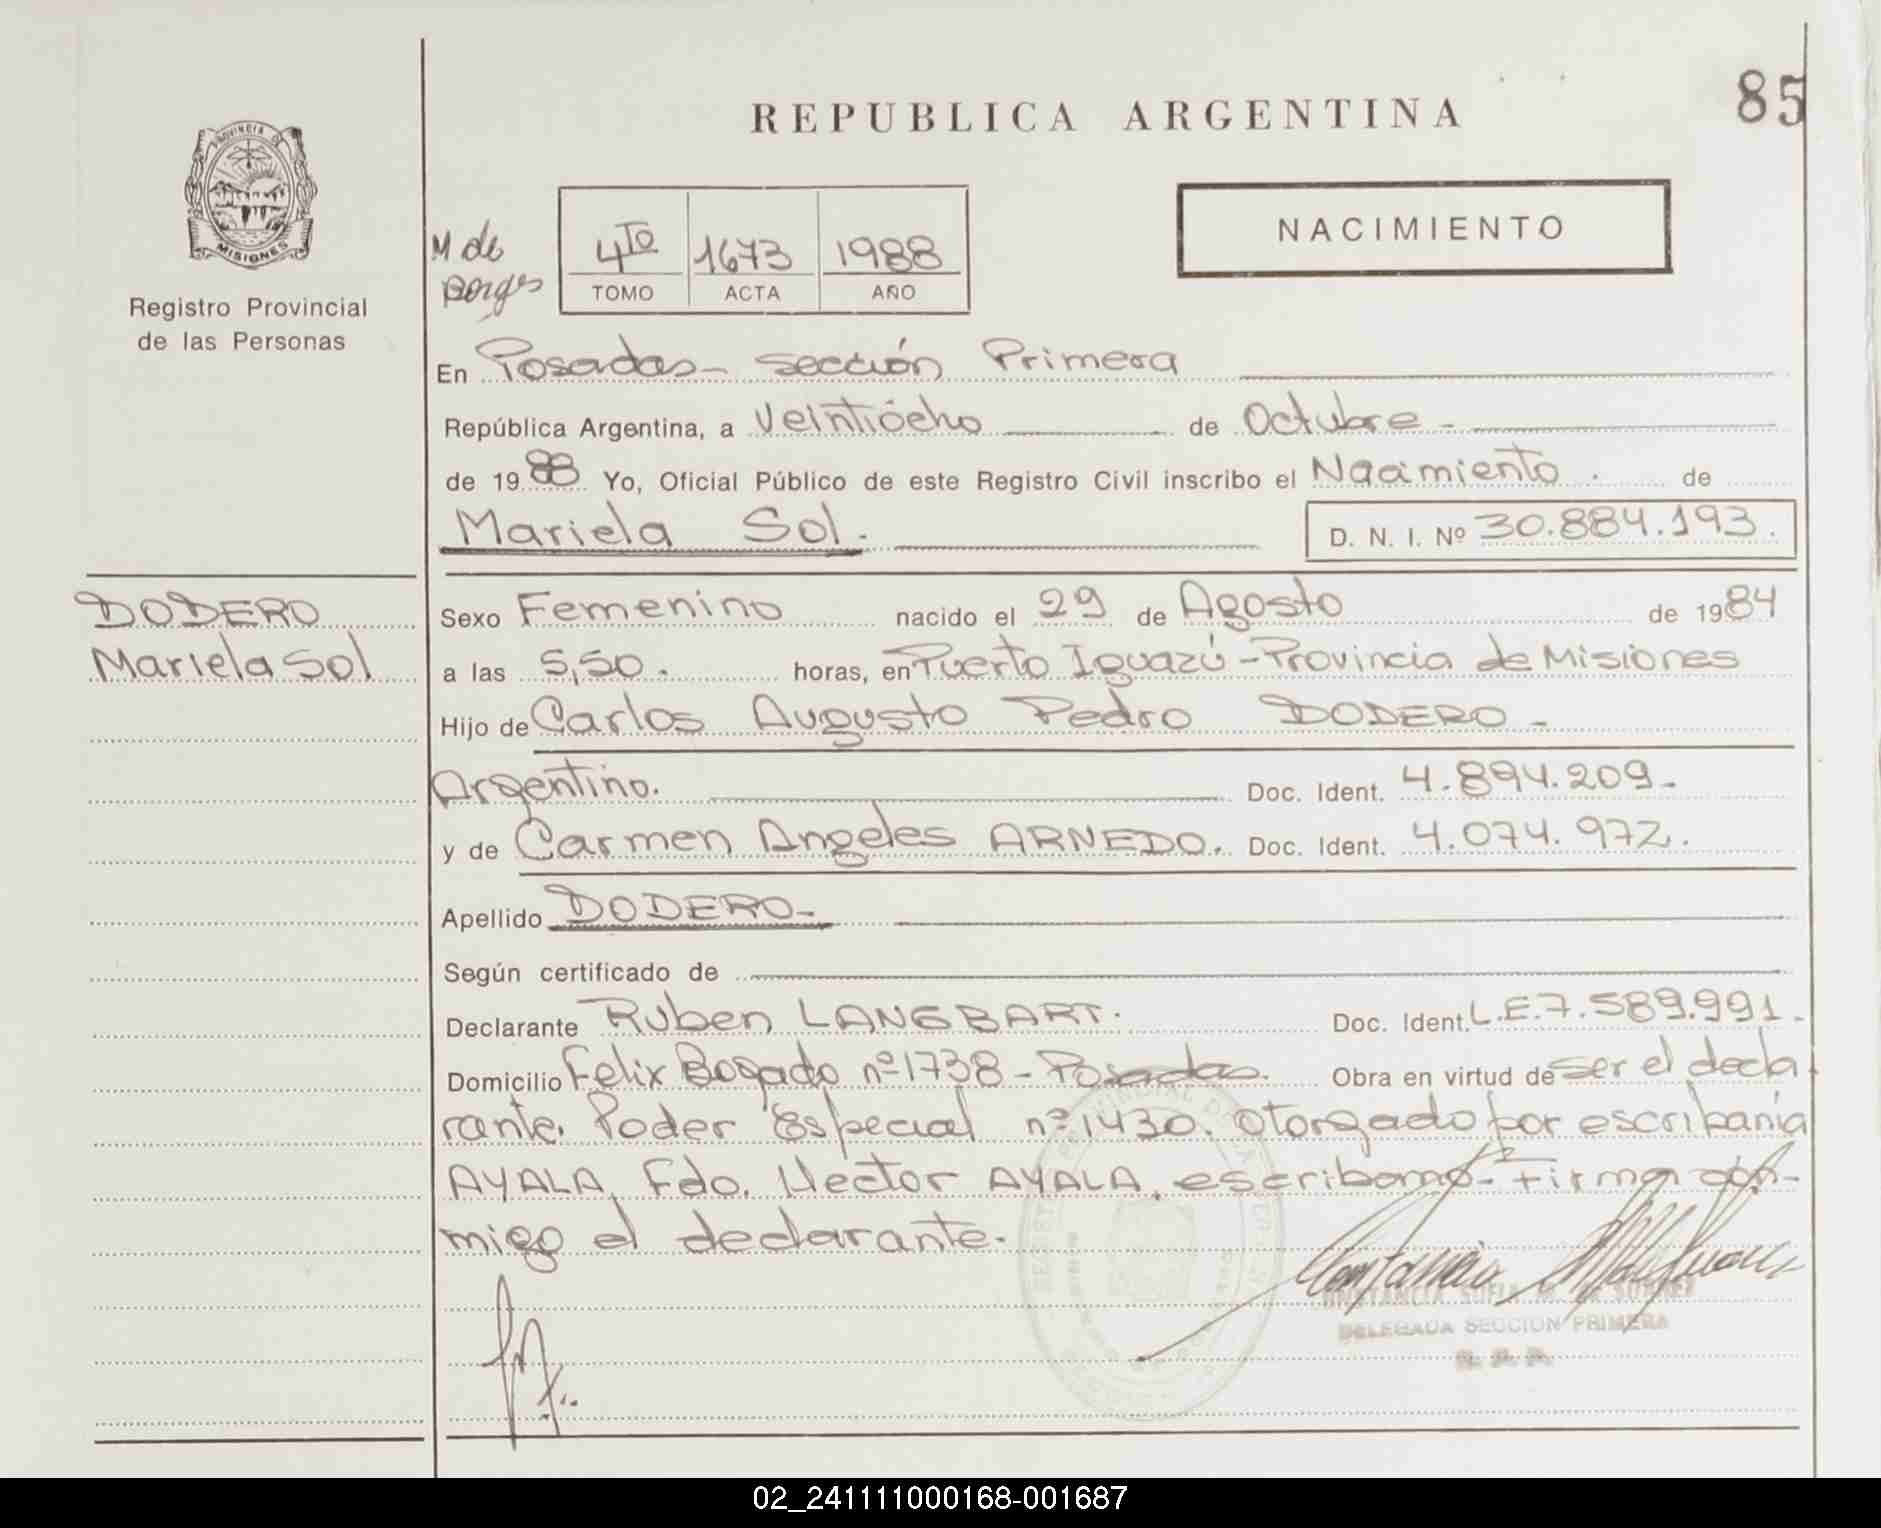 REPUBLICA ARGENTINA
85
PROVINCIA DE
MISIONES
Registro Provincial
de las Personas
M de
Borges
4to 1673 1988
TOMO ACTA AÑO
NACIMIENTO
En Posadas - Sección Primera
República Argentina, a Veintiócho de Octubre -
de 1988 Yo, Oficial Público de este Registro Civil inscribo el Nacimiento . de
Mariela Sol. D. N. I. Nº 30.884.193.
DODERO
Mariela Sol
Sexo Femenino nacido el 29 de Agosto de 1984
a las 5,50. horas, en Puerto Iguazú - Provincia de Misiones
Hijo de Carlos Augusto Pedro DODERO -
Argentino. Doc. Ident. 4.894.209 -
y de Carmen Angeles ARNEDO. Doc. Ident. 4.074.972.
Apellido DODERO -
Según certificado de
Declarante Ruben LANGBART. Doc. Ident. L.E. 7.589.991 -
Domicilio Felix Bogado nº 1738 - Posadas. Obra en virtud de ser el decla
rante. Poder Especial nº 1430. otorgado por escribanía
AYALA, Fdo. Hector AYALA, escribano - Firma con-
migo el declarante.
DELEGADA SECCION PRIMERA
02_241111000168-001687